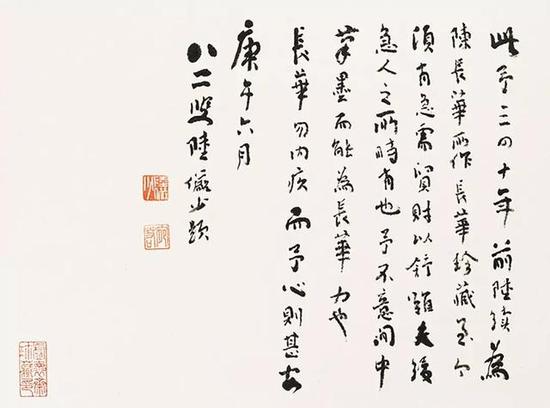 此予三四十年前陸續為
陳長華所作長華珍藏至今
頃有急需貿財以舒難夫緩
急人之所時有也予不意閒中
筆墨而能為長華力也
長華勿內疚而予心則甚安
庚午六月
八二叟陸儼少題